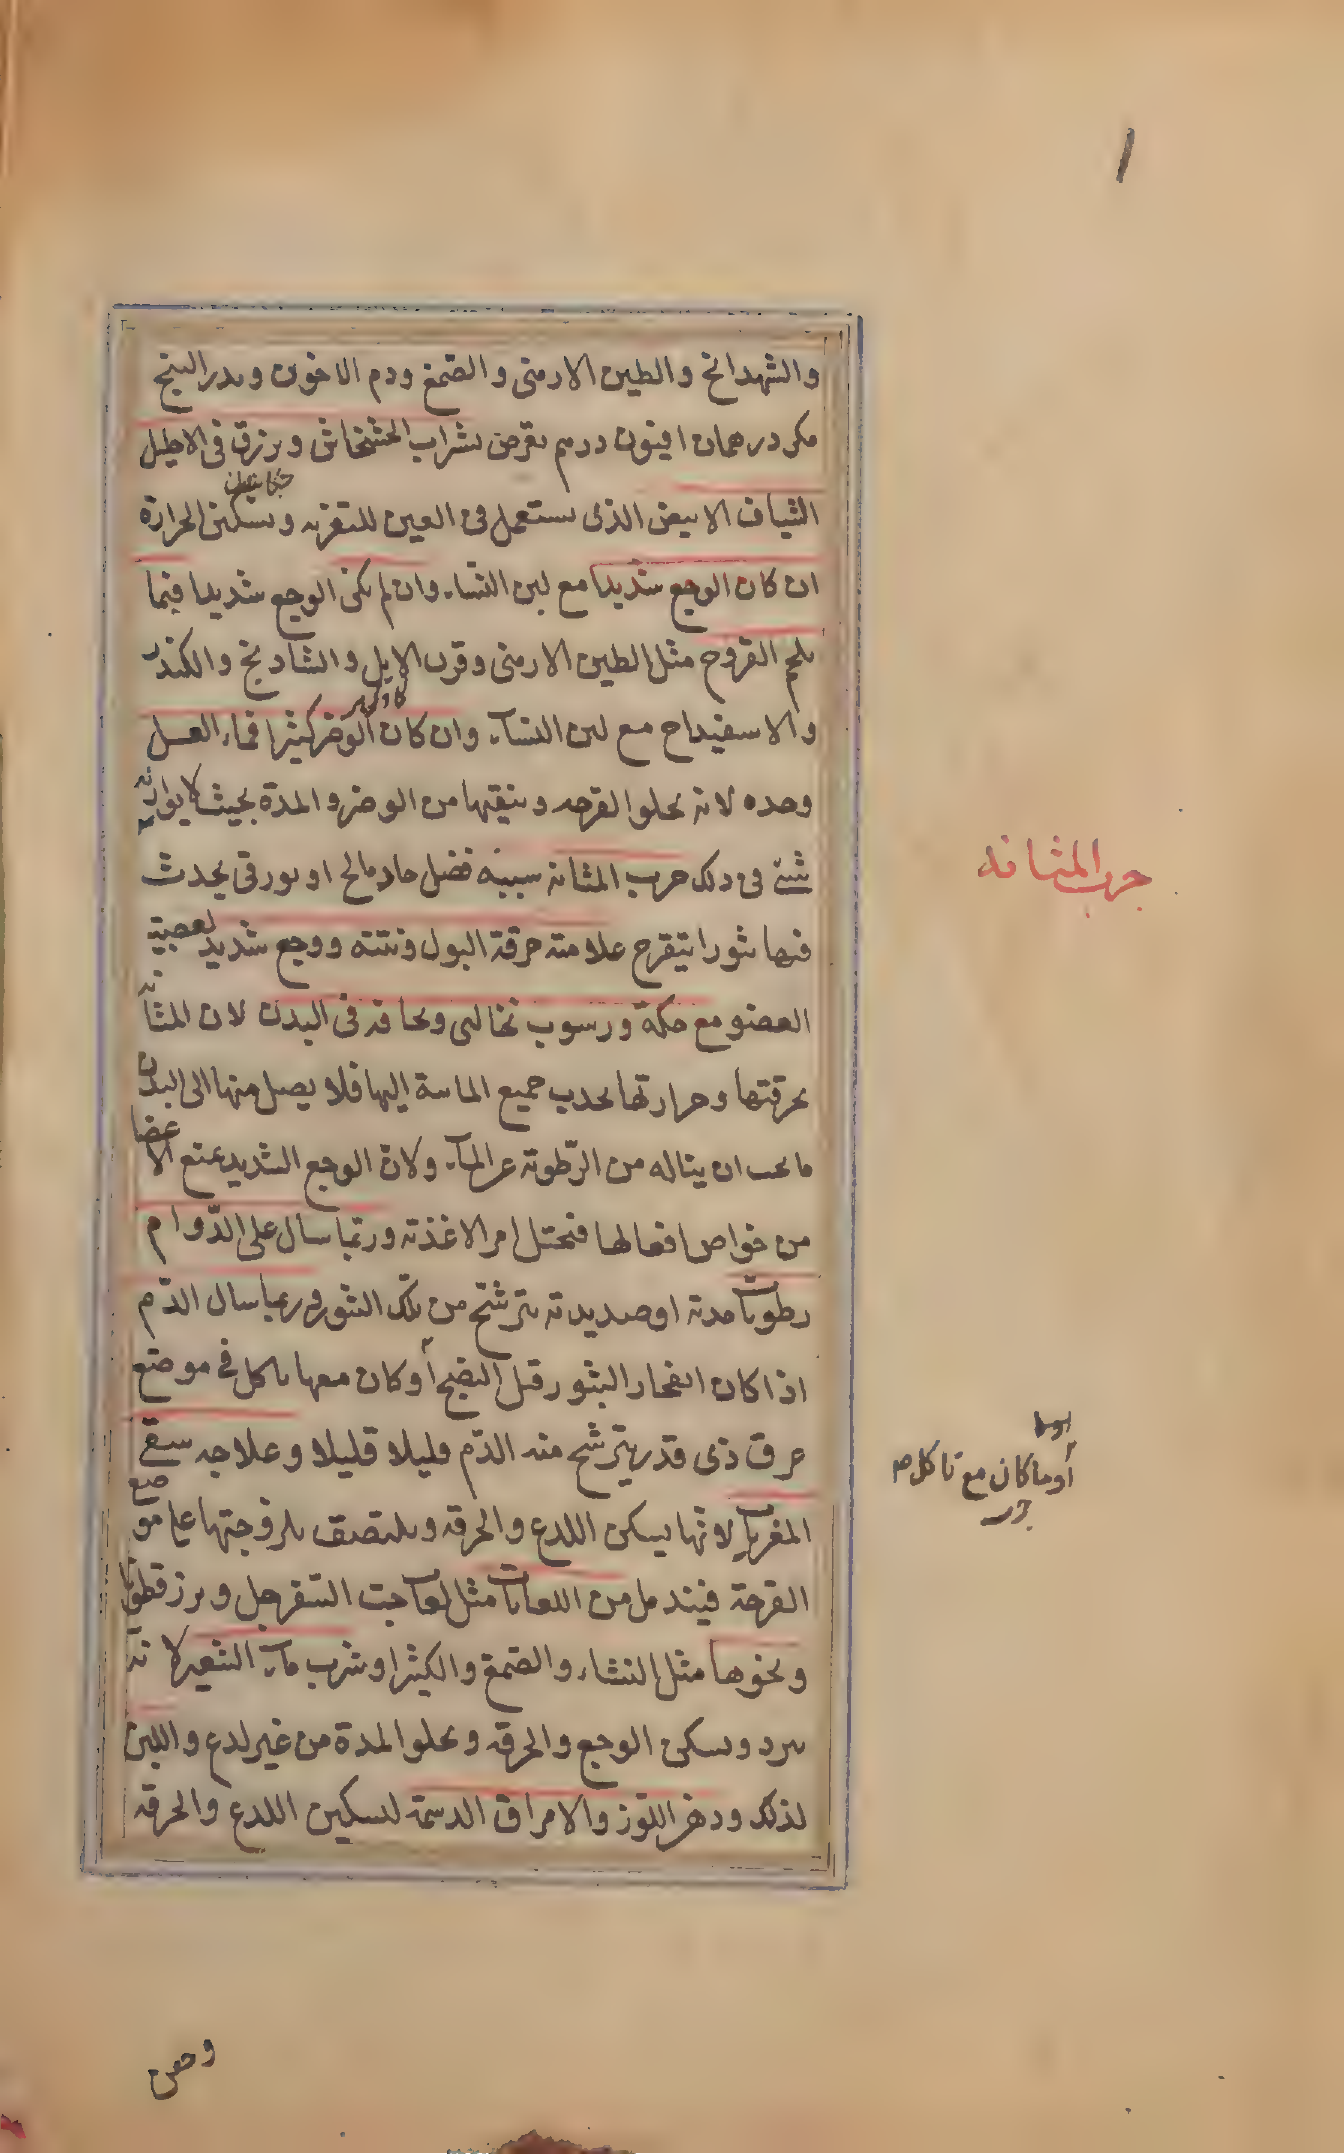 والشهدانج والطين الارمنى والصمغ ودم الاخوين وبدر البنج
مكر درهمان افيون درهم يقرص بشراب الخشخاش ويزرق فى الاحليل
الشياف الابيض الذى يستعمل فى العين للتغريه ويسكن الحرارة
ان كان الوجع شديدا مع لبن النساء وان لم يكن الوجع شديدا فبما
يلحم القروح مثل الطين الارمنى وقرن الايل والشادنج والكندر
والاسفيداج مع لبن النساء وان كان الوضر كثيرا فماء العسل
وحده لانه يجلوا القرحه وينقيها من الوضر والمدة بحيث لا يوازيه
شئ فى ذلك جرب المثانه سببه فضل حاد مالح او بورقى يحدث
فيها بثورا يتقرح علامته حرقة البول ونتنه ووجع شديد لعصبية
العضو مع حكة ورسوب نخالى ونحافه فى البدن لان المثانه
بحرقتها وحرارتها يجذب جميع المائية اليها فلا يصل منها الى البدن
ما يجب ان يناله من الرطوبة عن الماء ولان الوجع الشديد يمنع الاعضا
من خواص افعالها فيختل امر الاغذية وربما سال على الدوام
رطوبات مدية او صديدية يترشح من تلك البثور وربما سال الدم
اذا كان انفجار البثور قبل النضج أو كان معها تاكل فى موضع
عرق ذى قدر يترشح منه الدم قليلا قليلا وعلاجه سقى
المغريات لانها يسكن اللدع والحرقه ويلتصق بلزوجتها على موضع
القرحة فيندمل من اللعابات مثل لعاب حب السفرجل وبزر قطونا
ونحوها مثل النشاء والصمغ والكثيرا وشرب ماء الشعير لانه
يبرد ويسكن الوجع والحرقه ويجلوا المدة من غير لدع واللبن
لذلك ودهن اللوز والامراق الدسمة لتسكين اللدع والحرقه
جرب المثانه
أو ما كان مع تاكل
وحقن